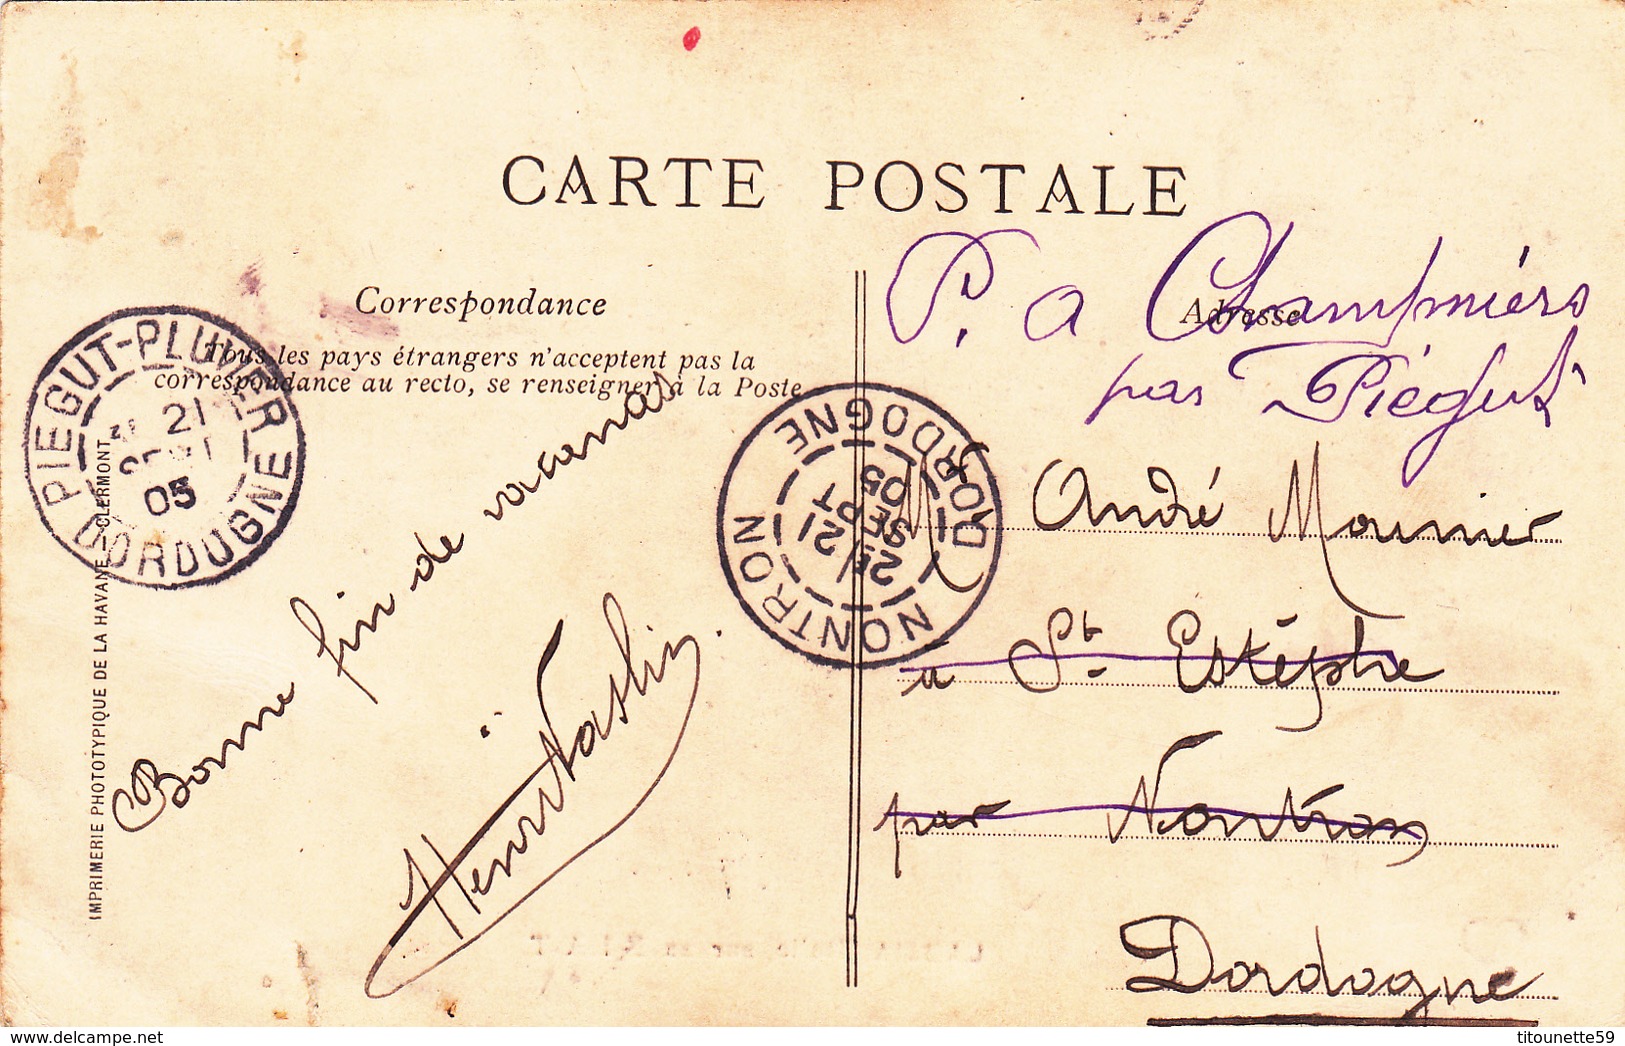 CARTE POSTALE
Correspondance
Tous les pays étrangers n'acceptent pas la
correspondance au recto, se renseigner à la Poste
Adresse
P. a Champniers
par Piégut
PIEGUT-PLUVIER
21
05
DORDOGNE
NONTRON NONTRON
DORDOGNE
2E/21
SEPT
05
IMPRIMERIE PHOTOTYPIQUE DE LA HAVANE, CLERMONT
Bonne fin de vacances
Henri
M André Mounier
à St Estèphe
par Nontron
Dordogne
delcampe.net
titounette59